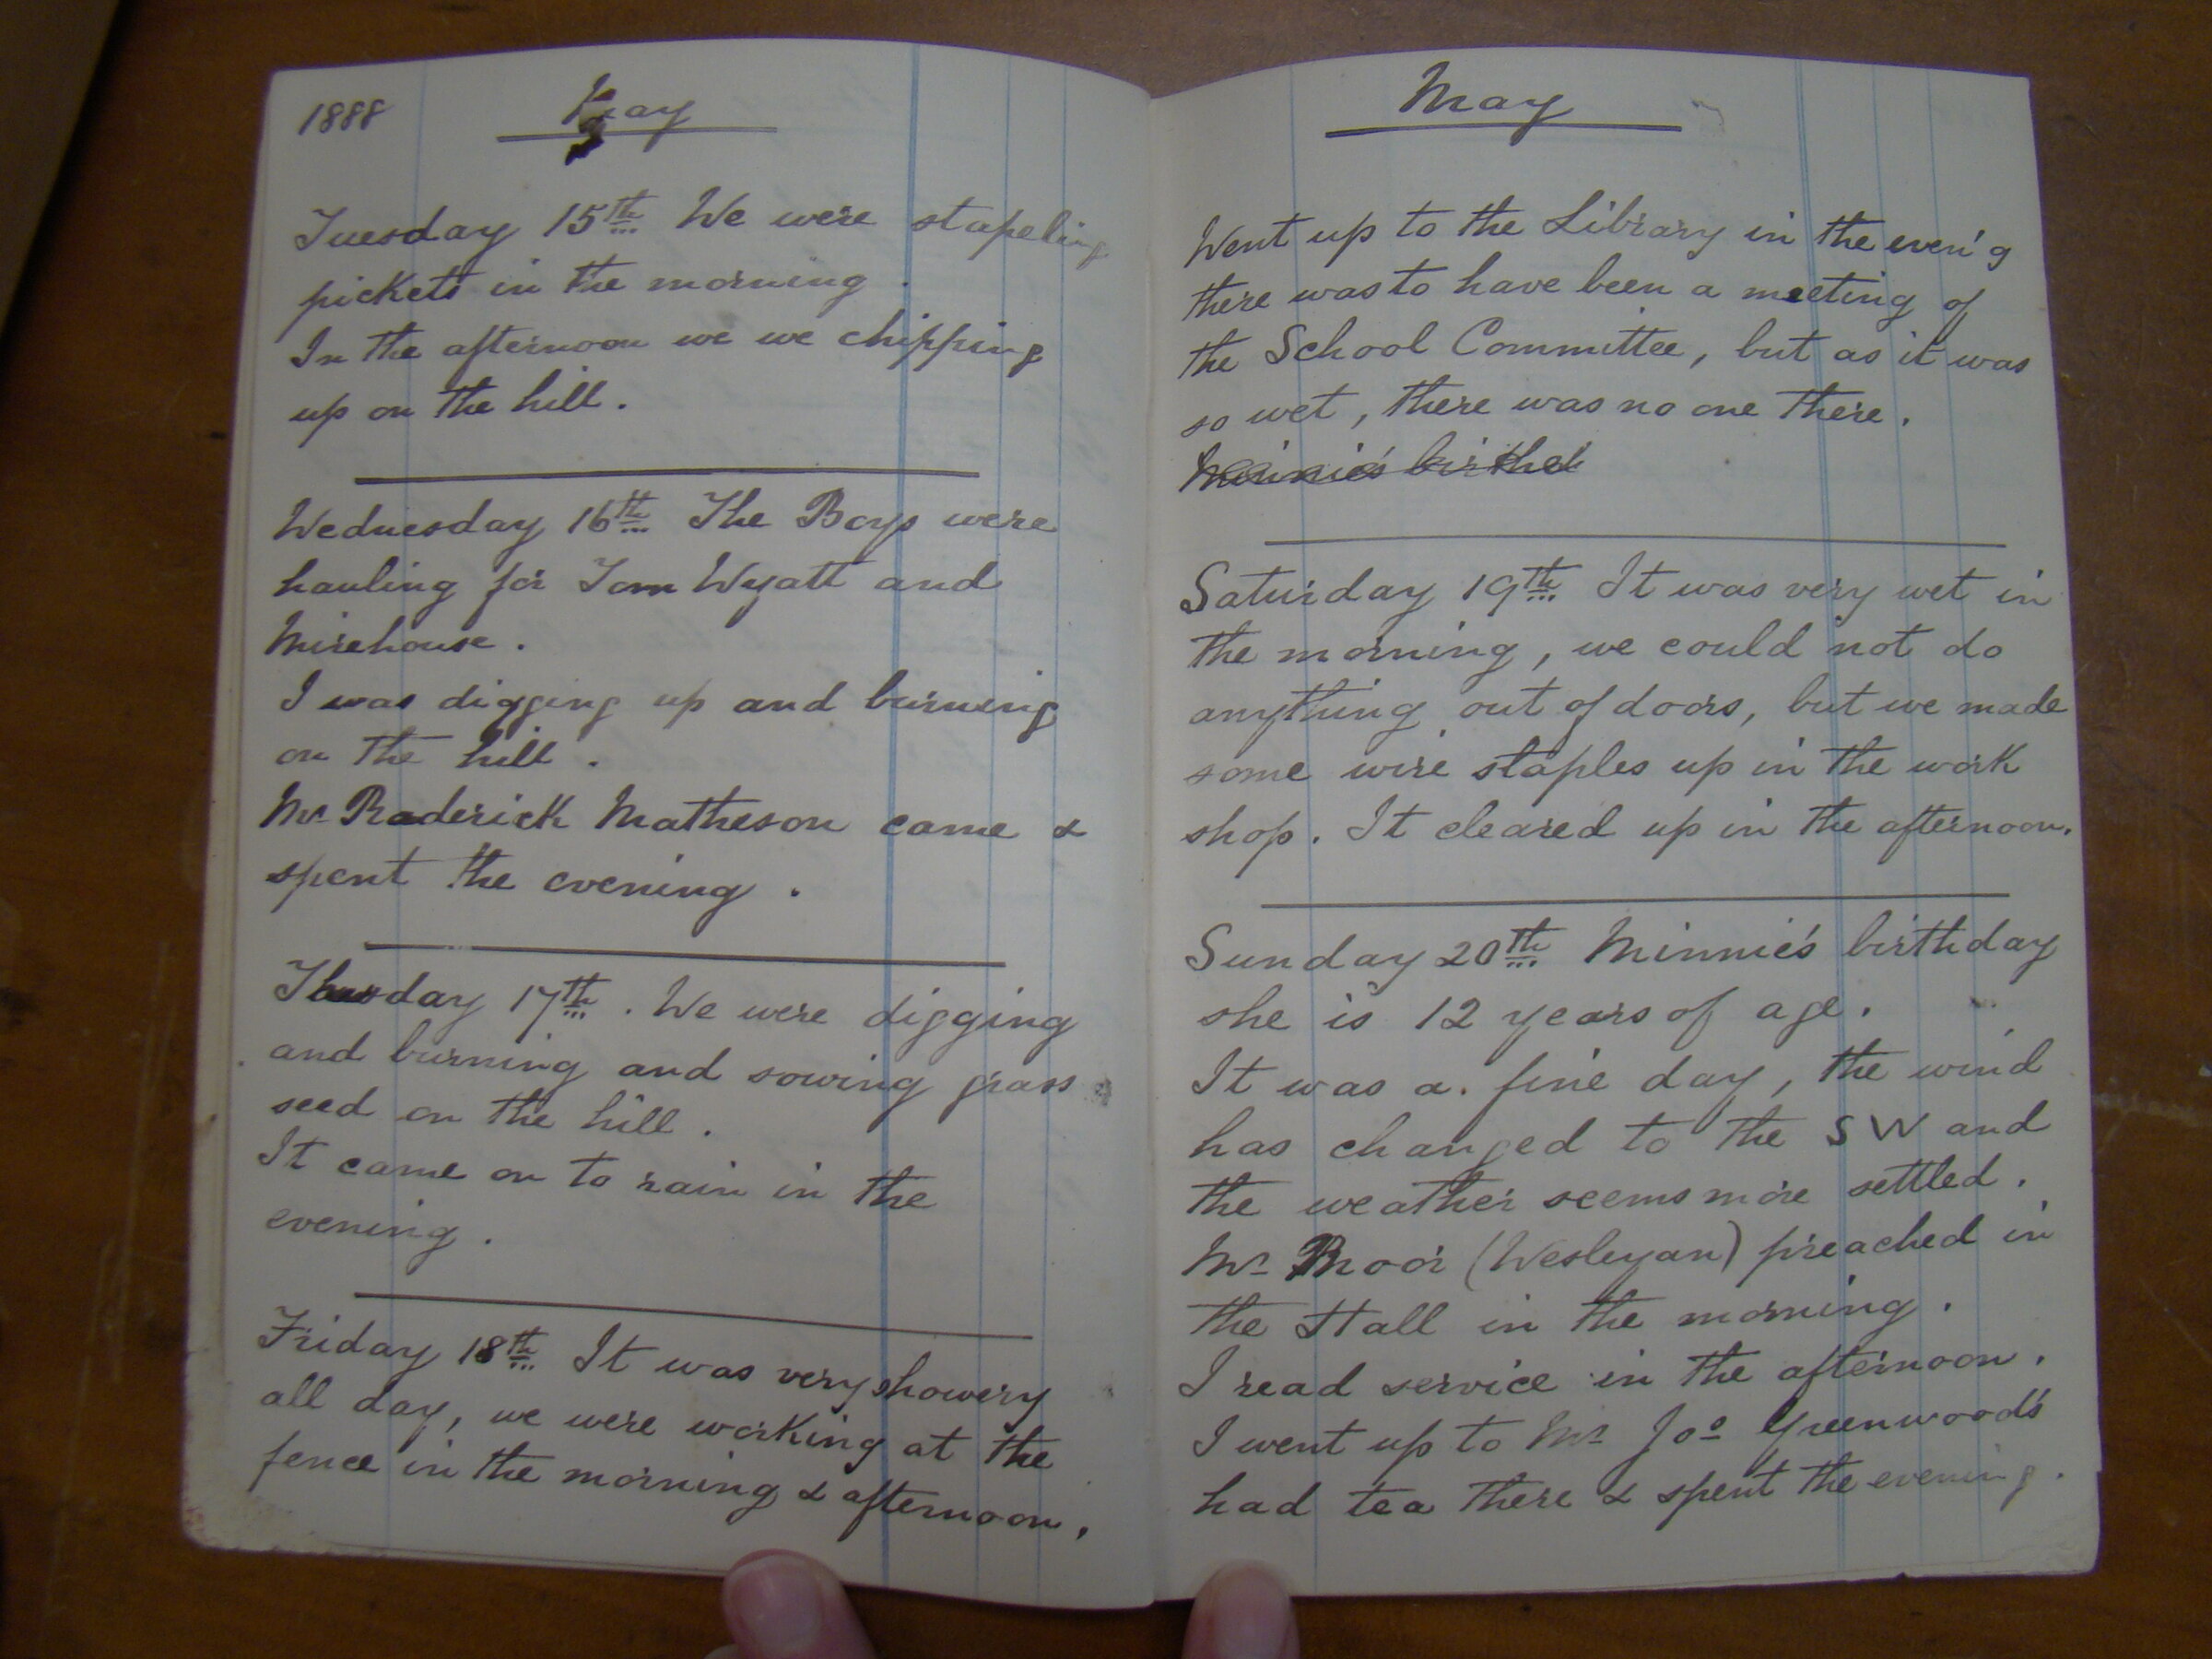 1888
May
Tuesday 15th We were stapeling
pickets in the morning.
In the afternoon we we chipping
up on the hill.
Wednesday 16th The Boys were
hauling for Tom Wyatt and
Mirehouse.
I was digging up and burning
on the hill.
Mr Roderick Matheson came &
spent the evening.
Thursday 17th. We were digging
and burning and sowing grass
seed on the hill.
It came on to rain in the
evening.
Friday 18th It was very showery
all day, we were working at the
fence in the morning & afternoon.
May
Went up to the Library in the even'g
there was to have been a meeting of
the School Committee, but as it was
so wet, there was no one there.
Minnie's birthd
Saturday 19th It was very wet in
the morning, we could not do
anything out of doors, but we made
some wire staples up in the work
shop. It cleared up in the afternoon.
Sunday 20th Minnie's birthday
she is 12 years of age.
It was a. fine day, the wind
has changed to the SW and
the weather seems more settled.
Mr Moor (Wesleyan) preached in
the Hall in the morning.
I read service in the afternoon.
I went up to Mr Joo Greenwood's
had tea there & spent the evening.